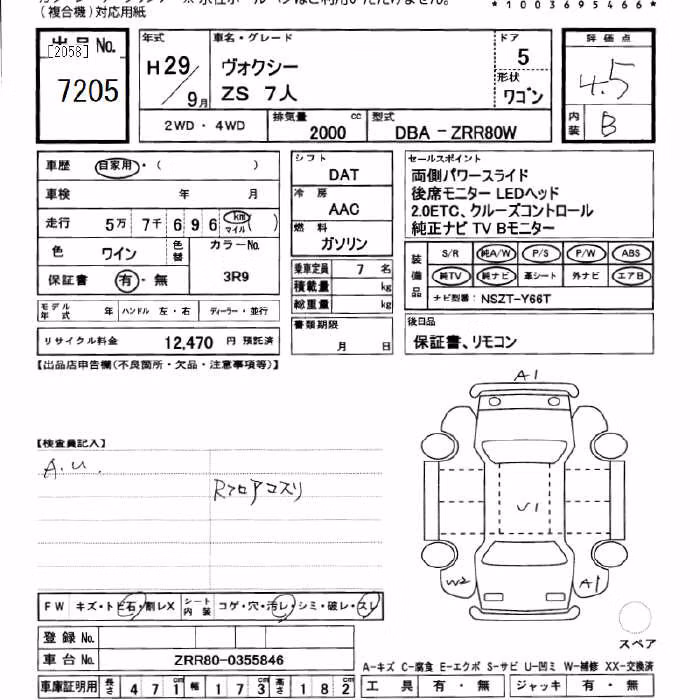 (複合機)対応用紙
*1003695466*
出品No.
[2058]
7205
年式
H29/9月
車名・グレード
ヴォクシー
ZS 7人
ドア
5
形状
ワゴン
2WD・4WD
排気量 2000 cc
型式 DBA-ZRR80W
評価点
4.5
内装 B
車歴 自家用・( )
車検 年 月
走行 5万7千696 km マイル ( )
色 ワイン 色替 カラーNo. 3R9
保証書 有・無
モデル年式 年 ハンドル 左・右 ディーラー・並行
リサイクル料金 12,470 円 預託済
シフト
DAT
冷房
AAC
燃料
ガソリン
乗車定員 7 名
積載量 kg
総重量 kg
書類期限
月 日
セールスポイント
両側パワースライド
後席モニター LEDヘッド
2.0ETC、クルーズコントロール
純正ナビ TV Bモニター
装備品
S/R 純A/W P/S P/W ABS
純TV 純ナビ 革シート 外ナビ エアB
ナビ型番: NSZT-Y66T
後日品
保証書、リモコン
【出品店申告欄(不良箇所・欠品・注意事項等)】
【検査員記入】
A.U.
Rフロアコスリ
A1
U1
W2
A1
スペア
FW キズ・トビ石・割レX シート内装 コゲ・穴・汚レ・シミ・破レ・スレ
登録No.
車台No. ZRR80-0355846
車庫証明用 長さ 471cm 幅 173cm 高さ 182cm
A-キズ C-腐食 E-エクボ S-サビ U-凹ミ W-補修 XX-交換済
工具 有・無 ジャッキ 有・無